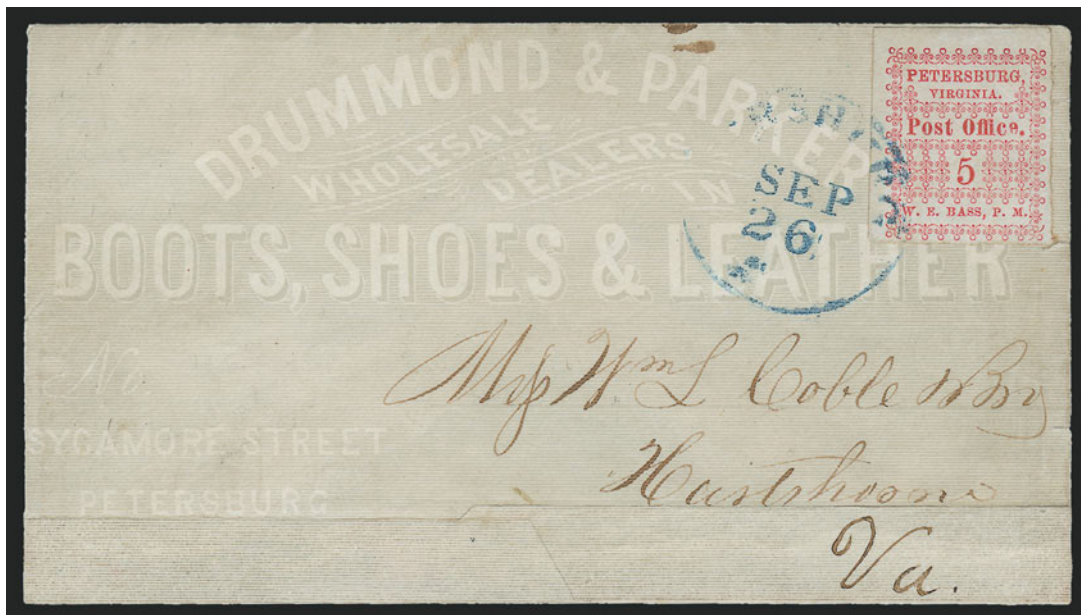 DRUMMOND & PARKER
WHOLESALE
DEALERS
IN
BOOTS, SHOES & LEATHER
No.
SYCAMORE STREET
PETERSBURG
PETERSBURG,
VIRGINIA.
Post Office.
5
W. E. BASS, P. M.
SEP
26
Wm L Coble & Bro
Va.